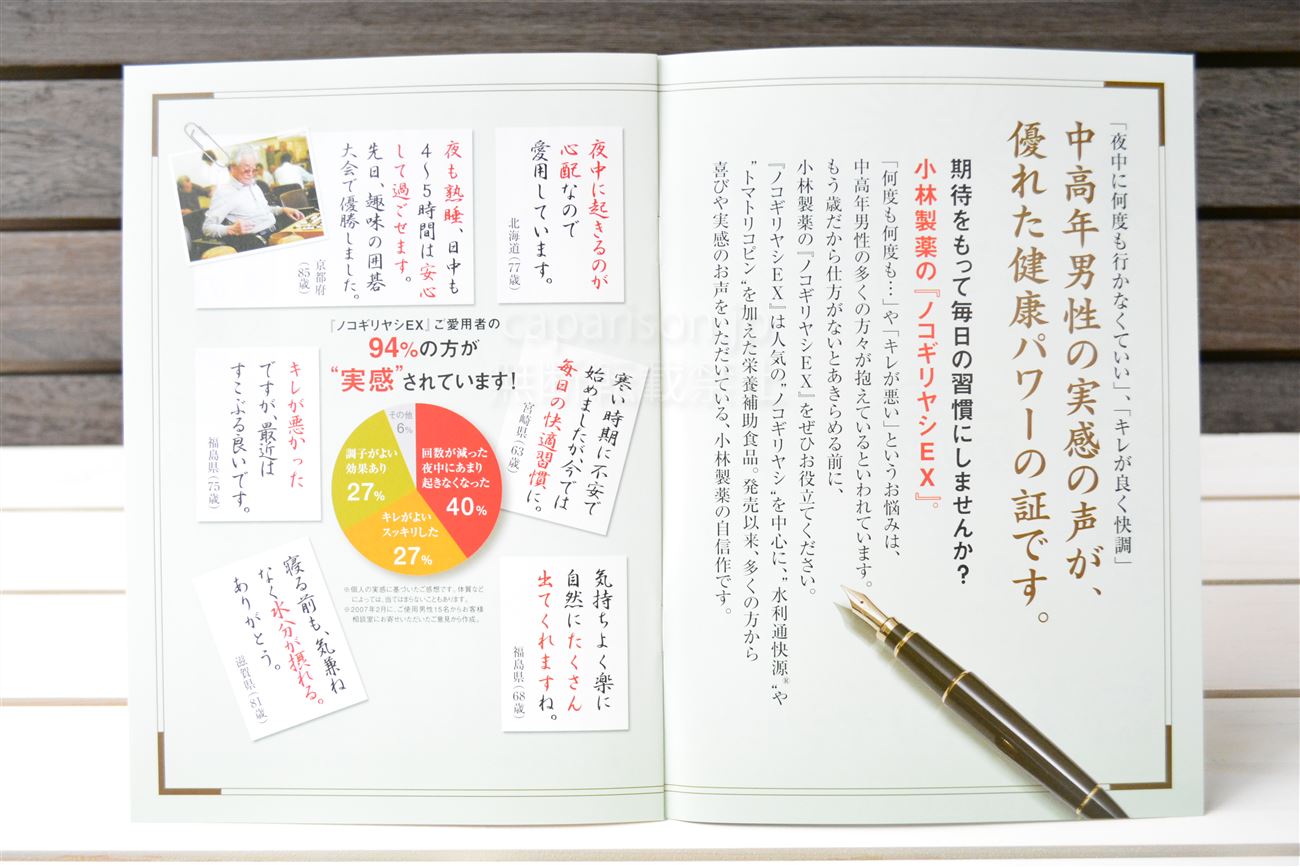 「夜中に何度も行かなくていい」、「キレが良く快調」
中高年男性の実感の声が、
優れた健康パワーの証です。
期待をもって毎日の習慣にしませんか?
小林製薬の『ノコギリヤシEX』。
「何度も何度も…」や「キレが悪い」というお悩みは、
中高年男性の多くの方々が抱えているといわれています。
もう歳だから仕方がないとあきらめる前に、
小林製薬の『ノコギリヤシEX』をぜひお役立てください。
『ノコギリヤシEX』は人気の"ノコギリヤシ"を中心に、"水利通快源®"や
"トマトリコピン"を加えた栄養補助食品。発売以来、多くの方から
喜びや実感のお声をいただいている、小林製薬の自信作です。
夜中に起きるのが
心配なので
愛用しています。
北海道(77歳)
夜も熟睡、日中も
4〜5時間は安心
して過ごせます。
先日、趣味の囲碁
大会で優勝しました。
京都府
(85歳)
『ノコギリヤシEX』ご愛用者の
94%の方が
"実感"されています!
その他
6%
回数が減った
夜中にあまり
起きなくなった
40%
キレがよい
スッキリした
27%
調子がよい
効果あり
27%
※個人の実感に基づいたご感想です。体質など
によっては、当てはまらないこともあります。
※2007年2月に、ご使用男性15名からお客様
相談室にお寄せいただいたご意見から作成。
寒い時期に不安で
始めましたが、今では
毎日の快適習慣に。
宮崎県(63歳)
キレが悪かった
ですが、最近は
すこぶる良いです。
福島県(75歳)
気持ちよく楽に
自然にたくさん
出てくれますね。
福島県(68歳)
寝る前も、気兼ね
なく水分が摂れる。
ありがとう。
滋賀県(81歳)
caparison.jp
無断転載禁止